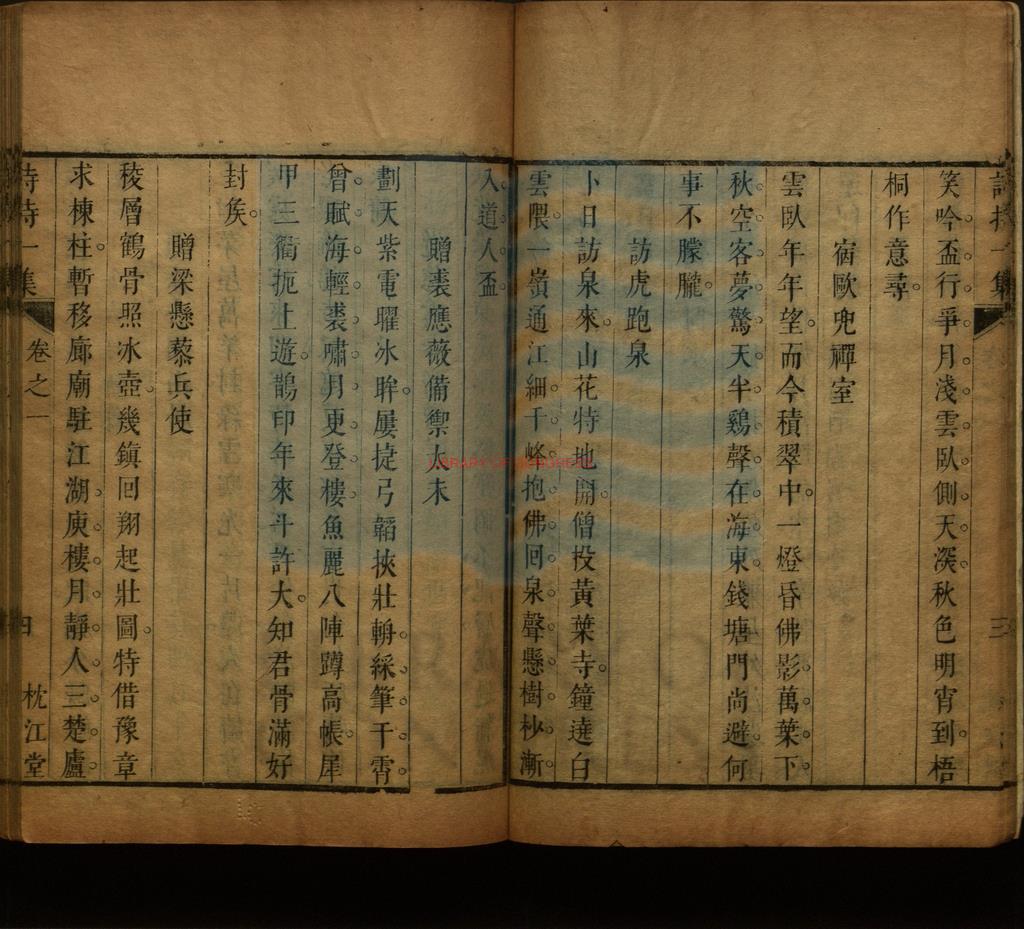 笑吟盃行爭月淺雲臥側天深秋色明宵到梧
桐作意尋
宿歐兜禪室
雲臥年年望而今積翠中一燈昏佛影萬葉下
秋空客夢驚天半鷄聲在海東錢塘門尚避何
事不朦朧
訪虎跑泉
卜日訪泉來山花特地開僧投黃葉寺鐘遶白
雲隈一嶺通江細千峰抱佛回泉聲懸樹杪漸
入道人盃
贈裘應薇備禦太末
劃天紫電曜冰眸屢捷弓韜挾壯輈綵筆干霄
曾賦海輕裘嘯月更登樓魚麗八陣蹲高帳犀
甲三衢扼上遊鵲印年來斗許大知君骨滿好
封矦
贈梁懸藜兵使
稜層鶴骨照冰壺幾鎮回翔起壯圖特借豫章
求棟柱暫移廊廟駐江湖庾樓月靜人三楚廬
詩持一集 卷之一 四 枕江堂
LIBRARY OF CONGRESS